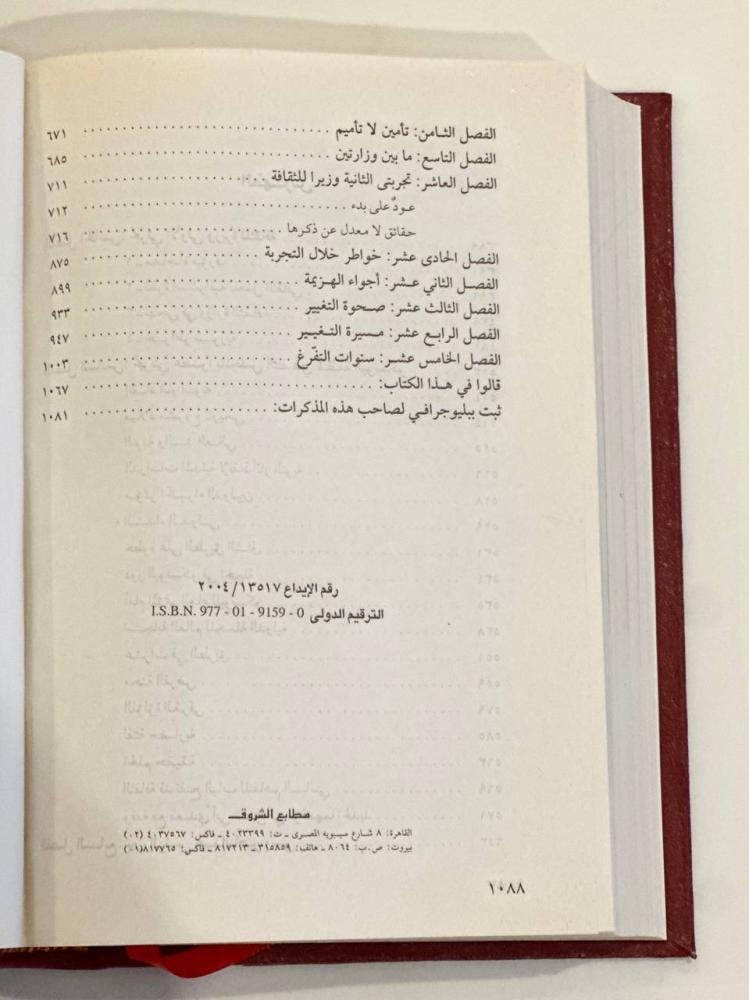 الفصل الثامن: تأمين لا تأميم ٦٧١
الفصل التاسع: ما بين وزارتين ٦٨٥
الفصل العاشر: تجربتى الثانية وزيرا للثقافة ٧١١
عودٌ على بدء ٧١٢
حقائق لا معدل عن ذكرها ٧١٦
الفصل الحادى عشر: خواطر خلال التجربة ٨٧٥
الفصل الثاني عشر: أجواء الهزيمة ٨٩٩
الفصل الثالث عشر: صحوة التغيير ٩٣٣
الفصل الرابع عشر: مسيرة التغيير ٩٤٧
الفصل الخامس عشر: سنوات التفرّغ ١٠٠٣
قالوا في هذا الكتاب: ١٠٦٧
ثبت ببليوجرافي لصاحب هذه المذكرات: ١٠٨١
رقم الإيداع ١٣٥١٧/ ٢٠٠٤
الترقيم الدولى I.S.B.N. 977 - 01 - 9159 - 0
مطابع الشروق
القاهرة: ٨ شارع سيبويه المصرى ـ ت: ٤٠٢٣٣٩٩ ـ فاكس: ٤٠٣٧٥٦٧ (٠٢)
بيروت: ص.ب: ٨٠٦٤ ـ هاتف: ٣١٥٨٥٩ ـ ٨١٧٢١٣ ـ فاكس: ٨١٧٧٦٥(٠١)
١٠٨٨